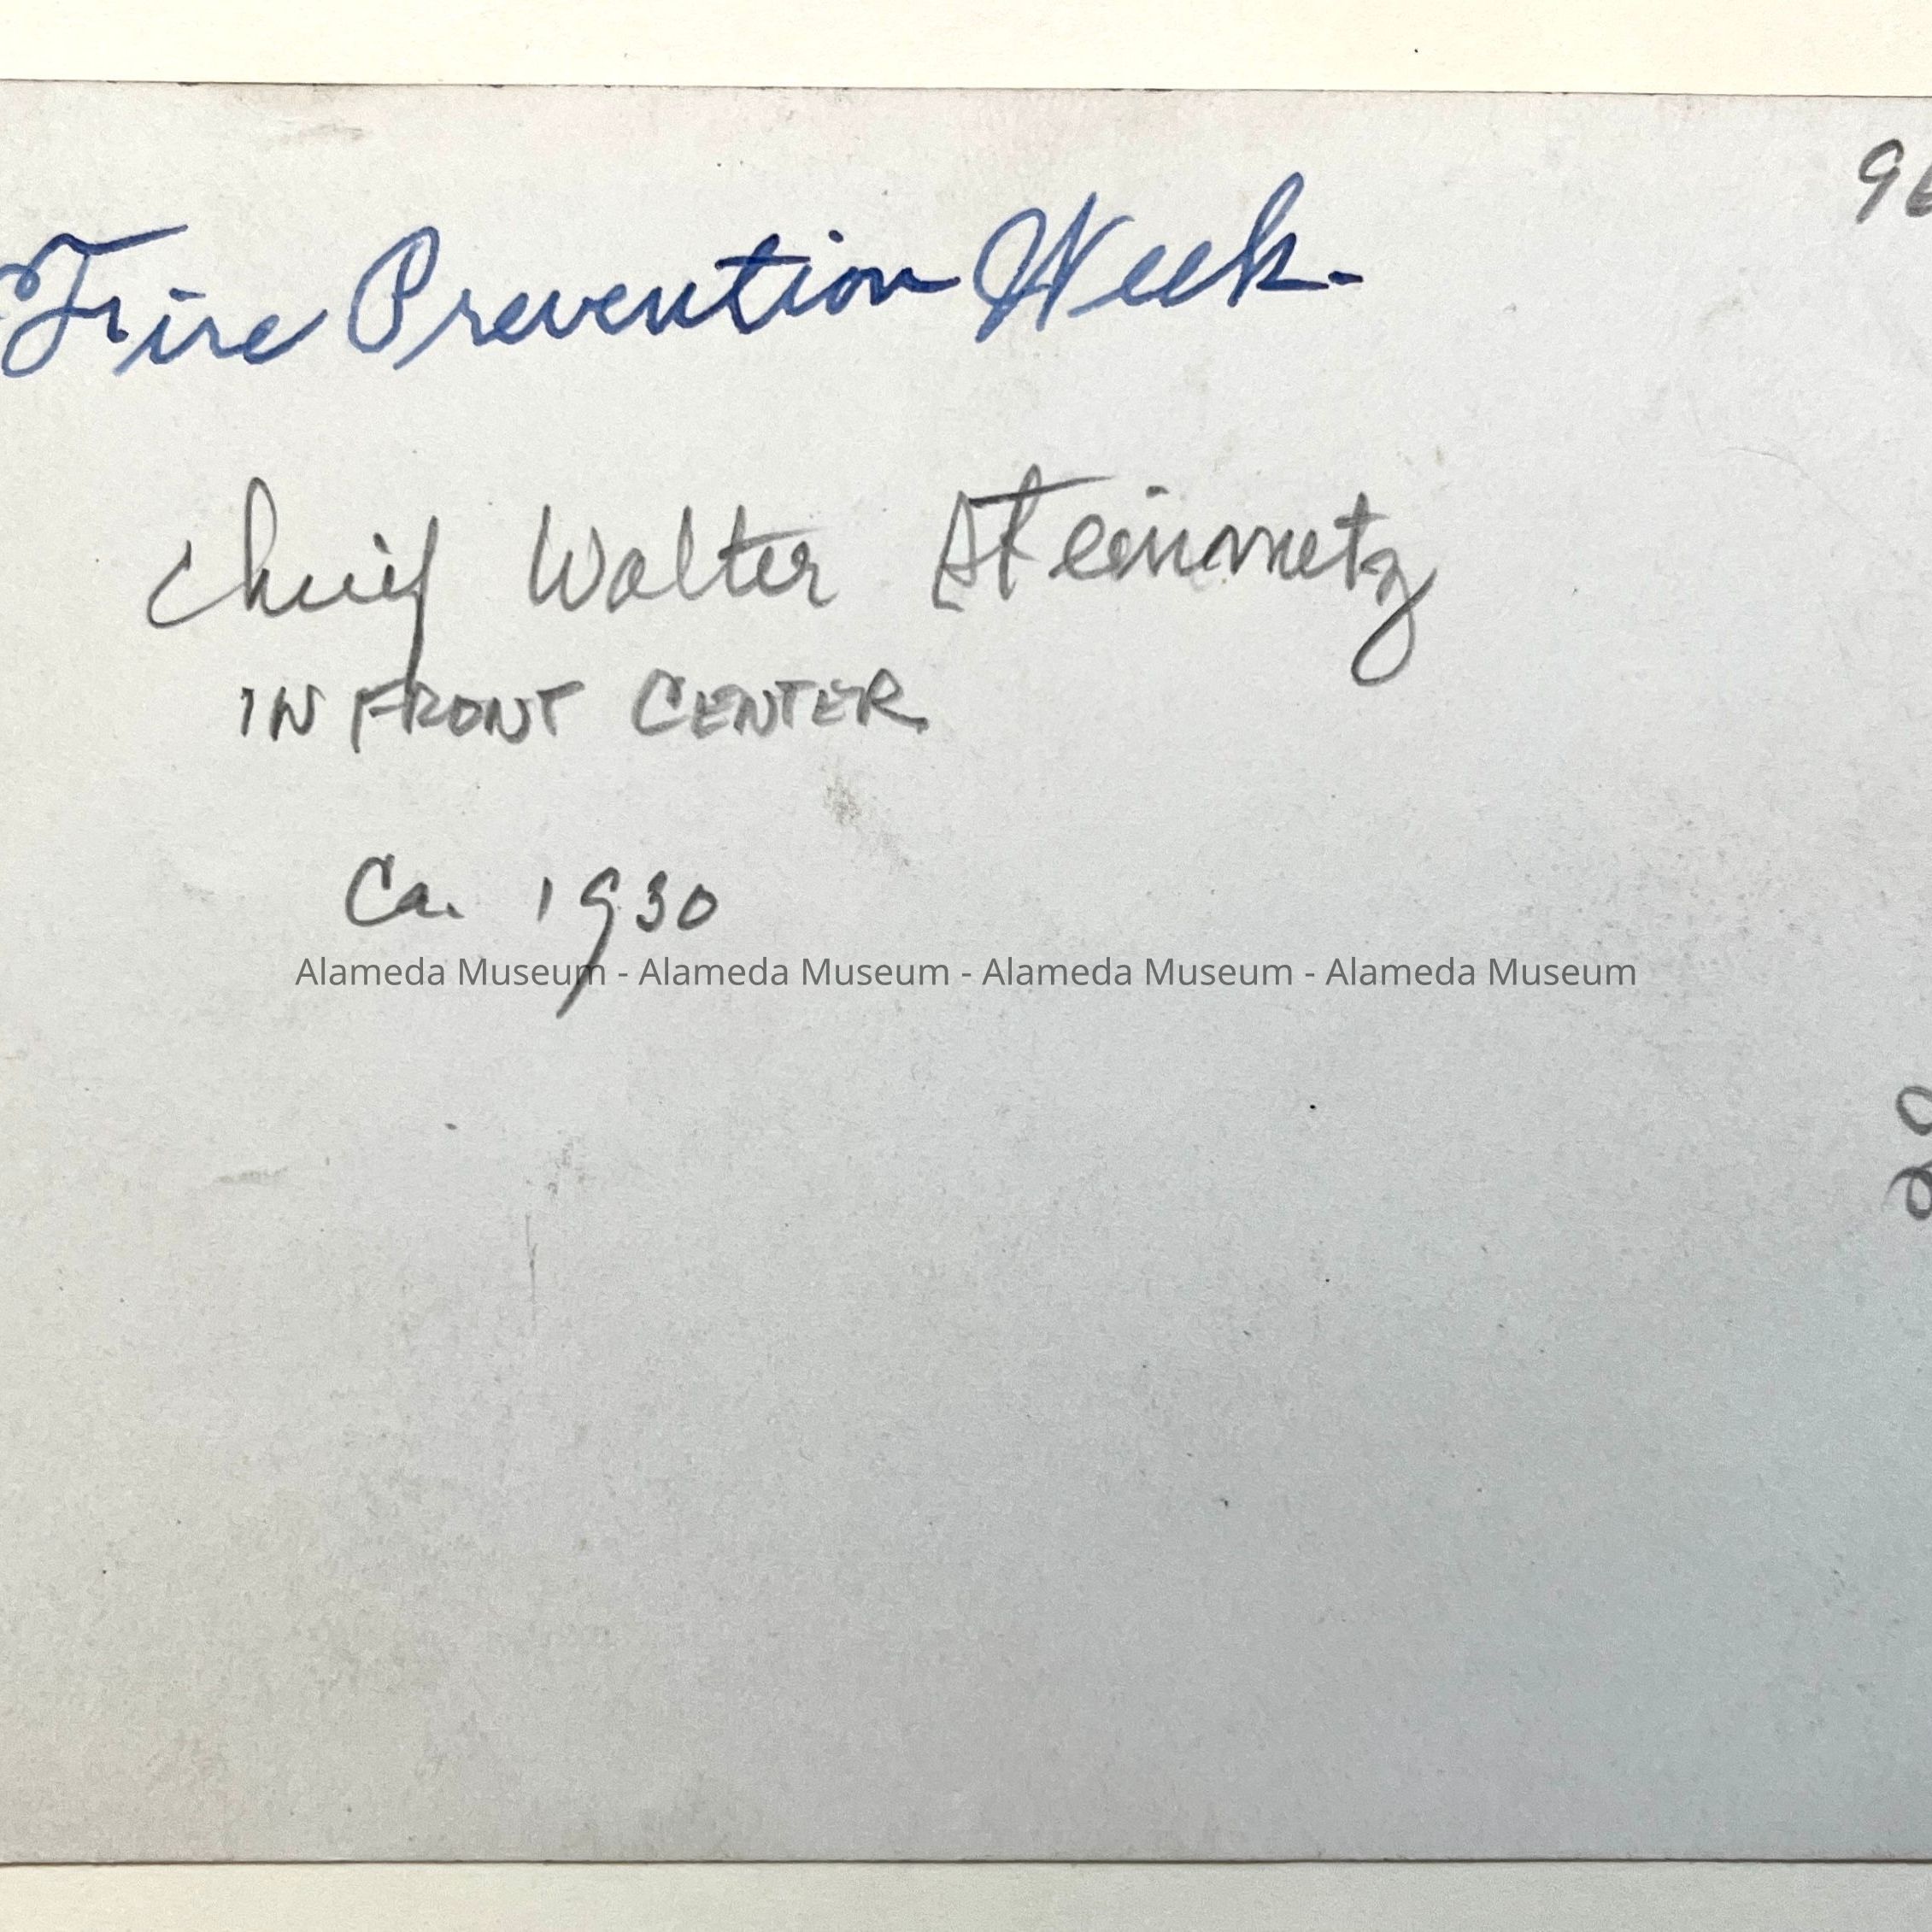 Fire Prevention Week-
Chief Walter Steinmetz
IN FRONT CENTER
Ca. 1930
Alameda Museum - Alameda Museum - Alameda Museum - Alameda Museum